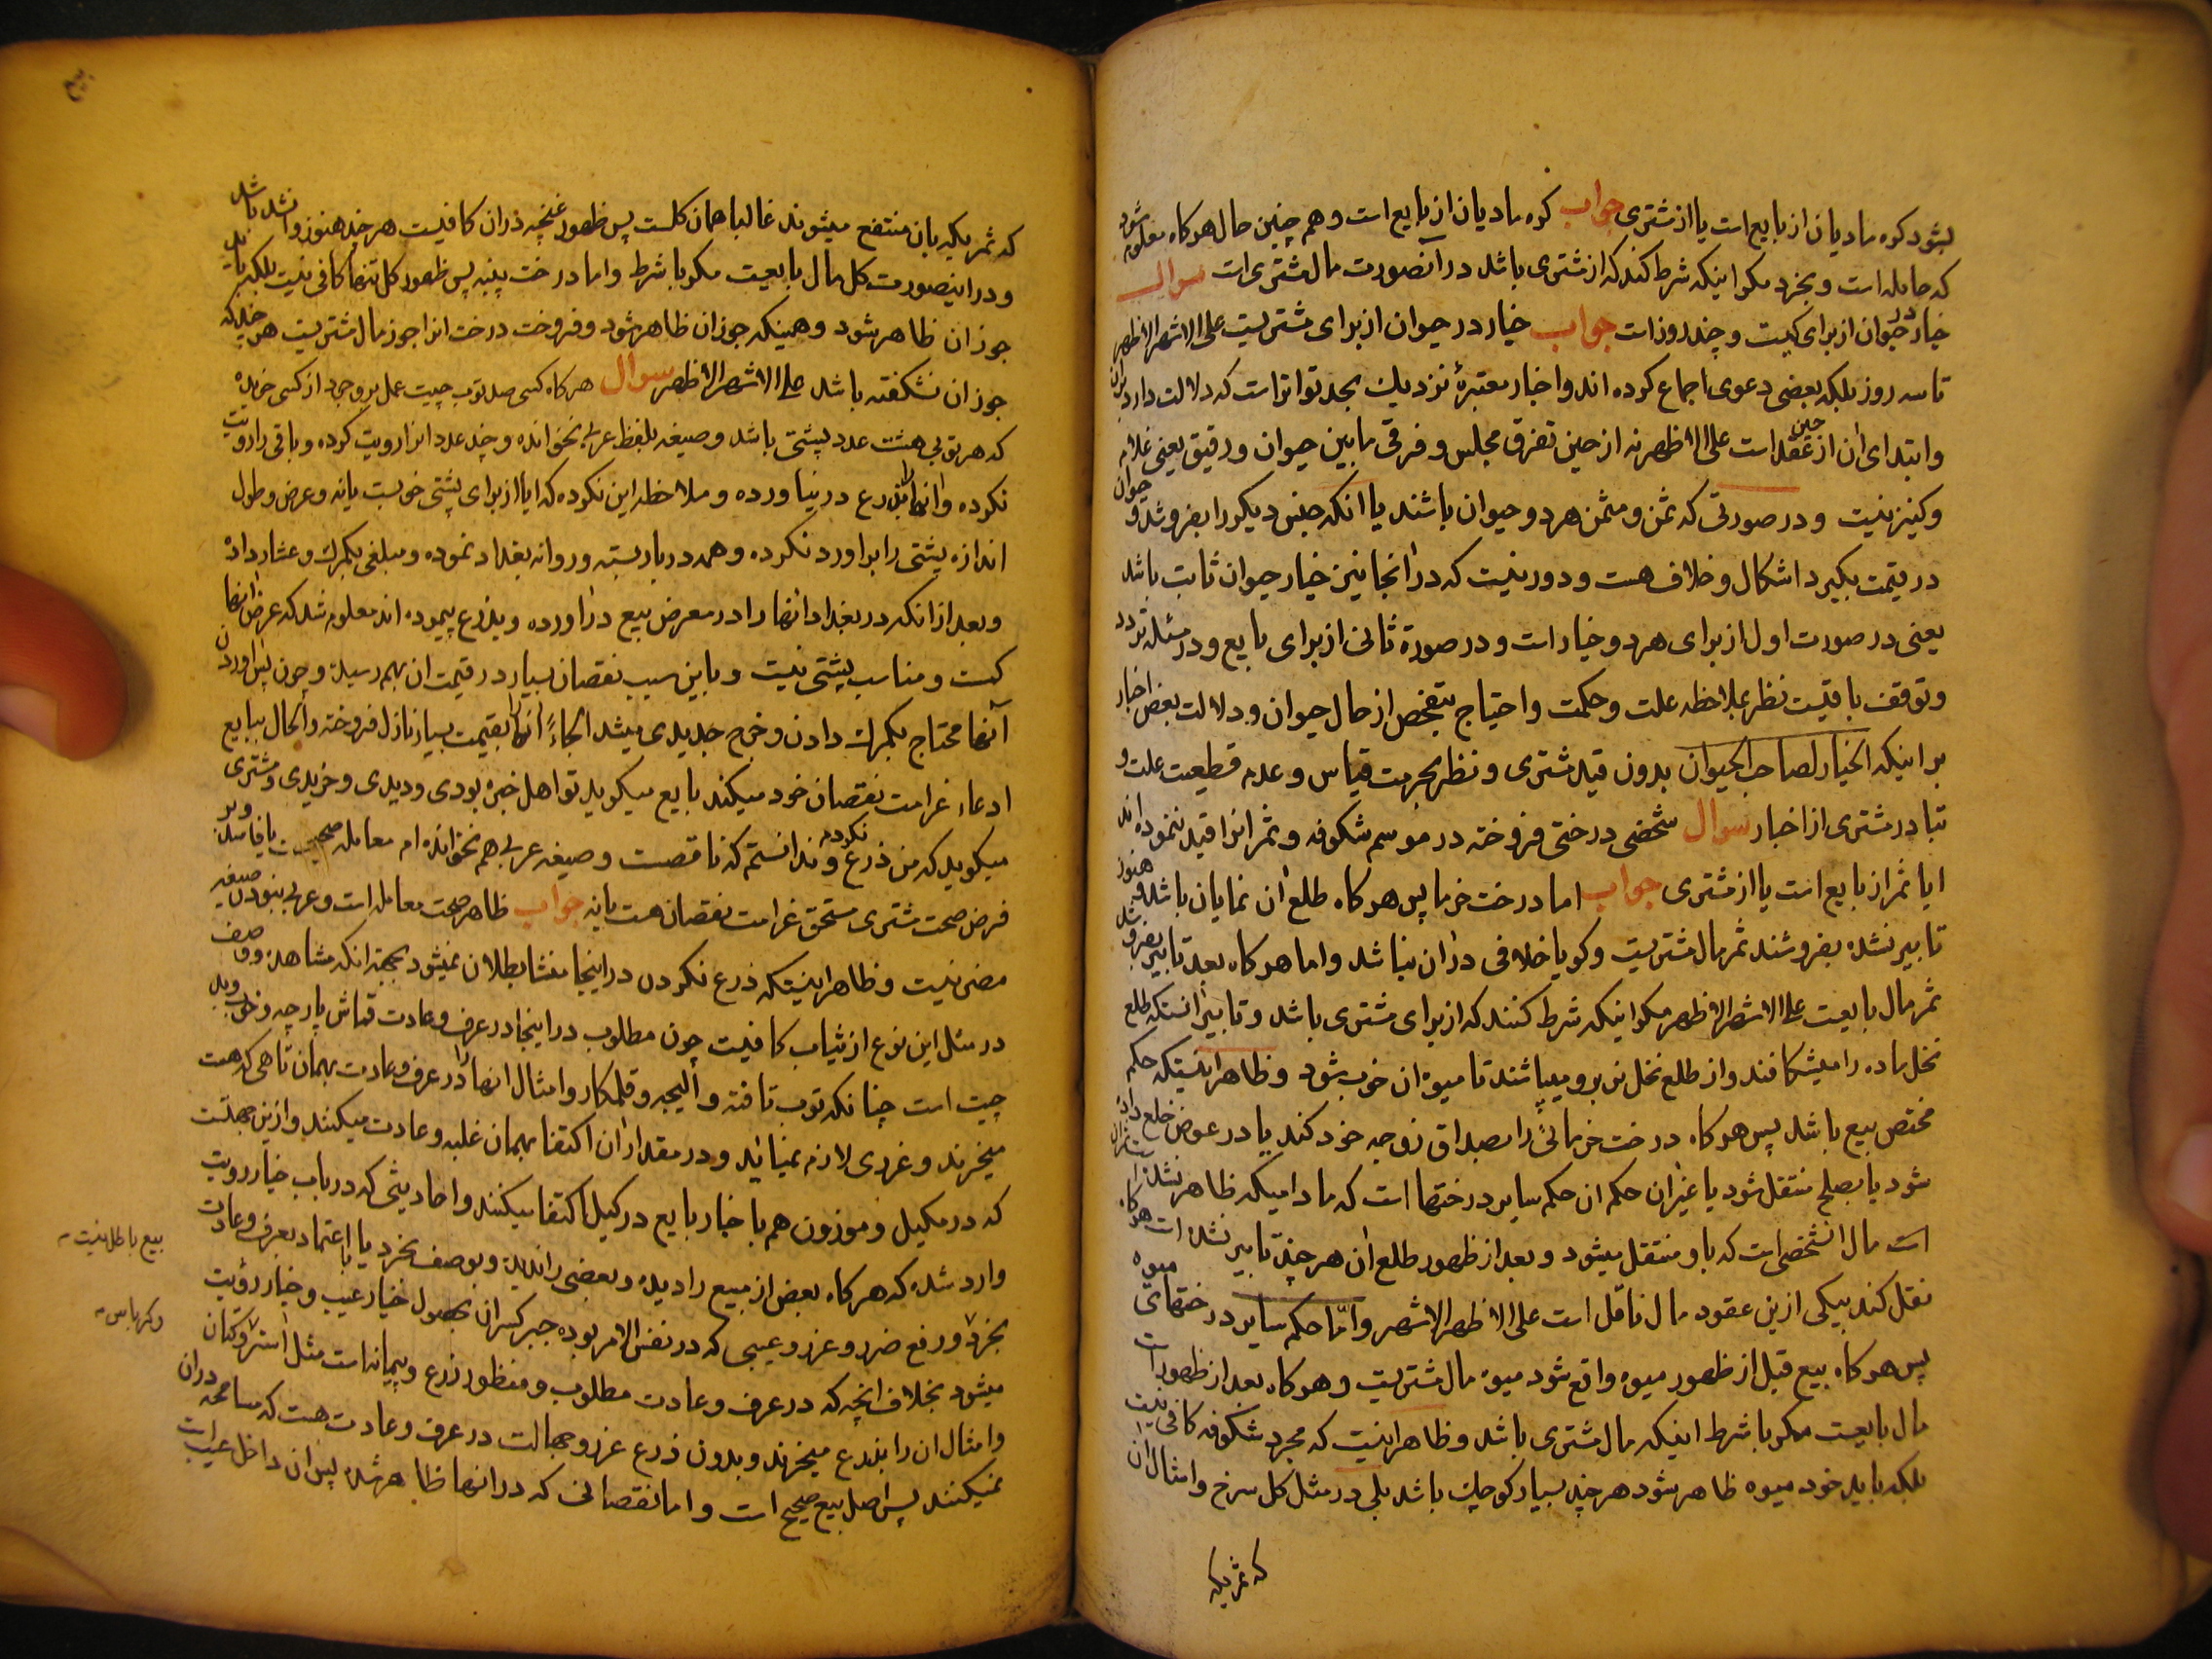 بشود کره مادیان از بایع است یا از مشتری جواب کره مادیان از بایع است و هم چنین حال هر کاه معلوم شود
که حامله است و بخرد مکر اینکه شرط کند که از مشتری باشد در آنصورت مال مشتری است سوال
خیار در حیوان از برای کیست و چند روز است جواب خیار در حیوان از برای مشتریست علی الاشهر الاظهر
تا سه روز بلکه بعضی دعوی اجماع کرده اند و اخبار معتبرهٔ نزدیك بحد تواتر است که دلالت دارد بران
و ابتدای ان از حین عقد است علی الاظهر نه از حین تفرق مجلس و فرقی مابین حیوان و رقیق یعنی غلام
و کنیز نیست و در صورتی که ثمن و مثمن هر دو حیوان باشند یا انکه جنس دیکر را بفروشد و حیوان
در قیمت بکیرد اشکال و خلاف هست و دور نیست که در انجا نیز خیار حیوان ثابت باشد
یعنی در صورت اول از برای هر دو خیار است و در صورة ثانی از برای بایع و در مسئله تردد
و توقف باقیست نظر بملاحظه علت و حکمت و احتیاج بتفحص از حال حیوان و دلالت بعض اخبار
بر اینکه الخیار لصاحب الحیوان بدون قید مشتری و نظر بحرمت قیاس و عدم قطعیت علت و
تبادر مشتری از اخبار سوال شخصی درختی فروخته در موسم شکوفه و ثمر انرا قید ننموده اند
ایا ثمر از بایع است یا از مشتری جواب اما درخت خرما پس هر کاه طلع ان نمایان باشد و هنوز
تابیر نشده بفروشند ثمر مال مشتریست و کویا خلافی در ان نباشد و اما هر کاه بعد تابیر بفروشد
ثمر مال بایعست علی الاشهر الاظهر مکر اینکه شرط کنند که از برای مشتری باشد و تابیر انستکه طلع
نخل ماده را میشکافند و از طلع نخل نر بر و میپاشند تا میوه ان خوب شود و ظاهر اینستکه حکم
مختص بیع باشد پس هر کاه درخت خرمائی را بصداق زوجه خود کند یا در عوض خلع داده
شود یا بصلح منتقل شود یا غیر ان حکم ان حکم سایر درختها است که مادامیکه ظاهر نشده
است مال انشخصی است که باو منتقل میشود و بعد از ظهور طلع ان هر چند تابیر نشده است هر کاه
نقل کند بیکی ازین عقود مال ناقل است علی الاظهر الاشهر و امّا حکم سایر درختهای میوه
پس هر کاه بیع قبل از ظهور میوه واقع شود میوه مال مشتریست و هر کاه بعد از ظهور است
مال بایعست مکر با شرط اینکه مال مشتری باشد و ظاهر اینست که مجرد شکوفه کافی نیست
بلکه باید خود میوه ظاهر شود هر چند بسیار کوچك باشد بلی در مثل کل سرخ و امثال ان
که ثمریکه
که ثمریکه بان منتفع میشوند غالبا همان کلست پس ظهور غنچه در ان کافیست هر چند هنوز وا نشده باشد
و در اینصورت کل مال بایعست مکر با شرط و اما درخت پنبه پس ظهور کل تنها کافی نیست بلکه باید
جوز ان ظاهر شود و همینکه جوز ان ظاهر شود و فروخت درخت انرا جوز مال مشتریست هر چند که
جوز ان نشکفته باشد علی الاشهر الاظهر سوال هر کاه کسی صد توب چیت عمل بروجرد از کسی خریده
که هر توبی هشت عدد پشتی باشد و صیغه بلفظ عربی نخوانده و چند عدد انرا رویت کرده و باقی را رویت
نکرده و انها را بذرع در نیاورده و ملاحظه این نکرده که ایا از برای پشتی خوبست یا نه و عرض و طول
اندازه پشتی را براورد نکرده و همه در بار بسته و روانه بغداد نموده و مبلغی بکمرك و عشار داده
و بعد از انکه در بغداد انها را در معرض بیع در اورده و بذرع پیموده اند معلوم شد که عرض انها
کمست و مناسب پشتی نیست و باین سبب نقصان بسیار در قیمت ان بهم رسیده و چون پس اوردن
آنها محتاج بکمرك دادن و خرج جدیدی میشد الجاءً انها را بقیمت بسیار نازل فروخته و الحال ببایع
ادعاء غرامت نقصان خود میکند بایع میکوید تو اهل خبره بودی و دیدی و خریدی و مشتری
میکوید که من ذرع نکردم و ندانستم که ناقصست و صیغه عربی هم نخوانده ام معامله صحیحست یا فاسد و بر
فرض صحت مشتری مستحق غرامت نقصان هست یا نه جواب ظاهر صحت معامله است و عربی نبودن صیغه
مضر نیست و ظاهر اینستکه ذرع نکردن در اینجا منشا بطلان نمیشود بجهة انکه مشاهده و وصف
در مثل این نوع از ثیاب کافیست چون مطلوب در اینجا در عرف و عادت قماش پارچه و خوب و بد
چیت است چنانکه توب تافته و الیجه و قلمکار و امثال انها را در عرف و عادت بهمان تاهی که هست
میخرند و غرری لازم نمیاید و در مقدار ان اکتفا بهمان غلبه و عادت میکنند و ازین جهتست
که در مکیل و موزون هم باخبار بایع در کیل اکتفا میکنند و احادیثی که در باب خیار رویت
وارد شده که هر کاه بعض از مبیع را دیده و بعضی را ندیده و بوصف بخرد یا باعتماد بعرف و عادت
بخرد و رفع ضرر و غرر و عیبی که در نفس الامر بوده جبر کسر ان بحصول خیار عیب و خیار رؤیت
میشود بخلاف انچه که در عرف و عادت مطلوب و منظور ذرع و پیمانه است مثل استر و کتان
و امثال ان را بذرع میخرند و بدون ذرع غرر و جهالت در عرف و عادت هست که مسامحه در ان
نمیکنند پس اصل بیع صحیح است و اما نقصانی که در انها ظاهر شده پس ان داخل عیب است
بیع باطل نیست
و کرباس